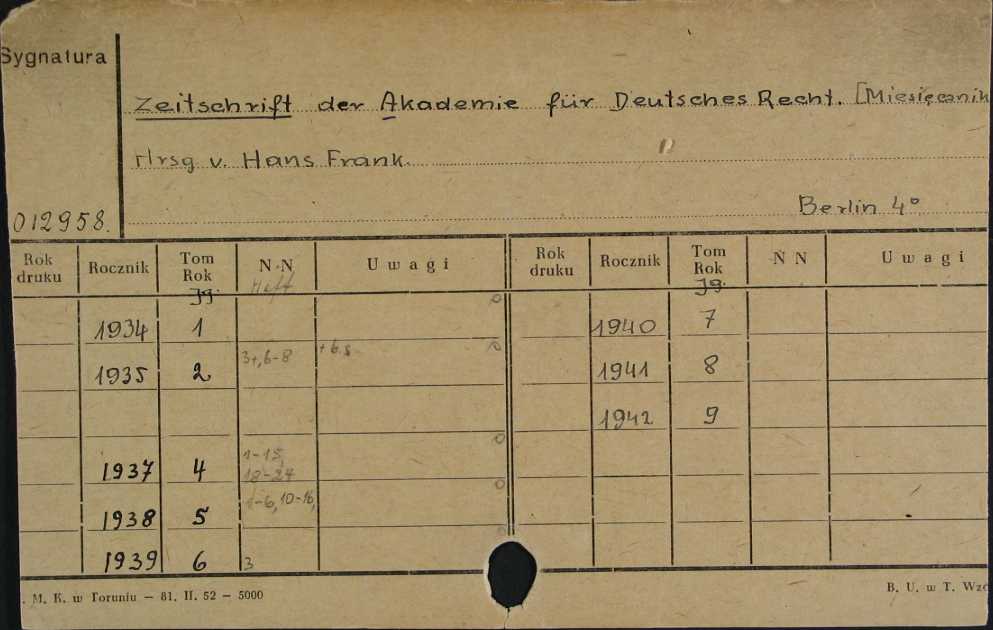 Sygnatura
Zeitschrift der Akademie für Deutsches Recht. [Miesięcznik
Hrsg v. Hans Frank.
Berlin 4°
012958.
Rok druku Rocznik Tom Rok N N Uwagi Rok druku Rocznik Tom Rok N N Uwagi
Jg. Heft Jg.
1934 1 1940 7
1935 2 3+,6-8 + b.s. 1941 8
1942 9
1937 4 1-15, 18-24
1938 5 1-6, 10-16,
1939 6 3
. M. K. w Toruniu — 81. II. 52 — 5000 B. U. w T. Wzó